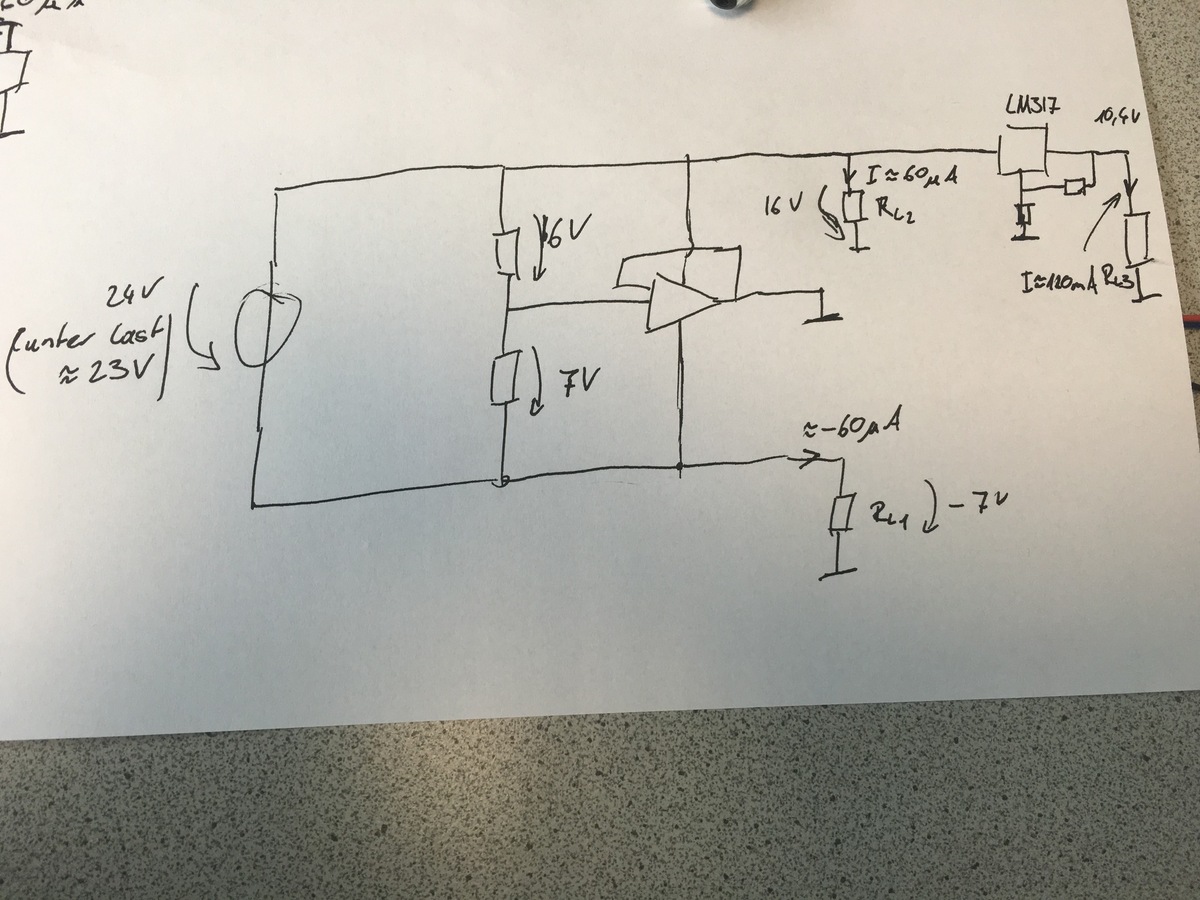 LM317
10,4V
I ≈ 60µA
16 V
RL2
16V
I≈120mA RL3
24V
(unter Last)
≈ 23V
7V
≈-60µA
RL1
-7V